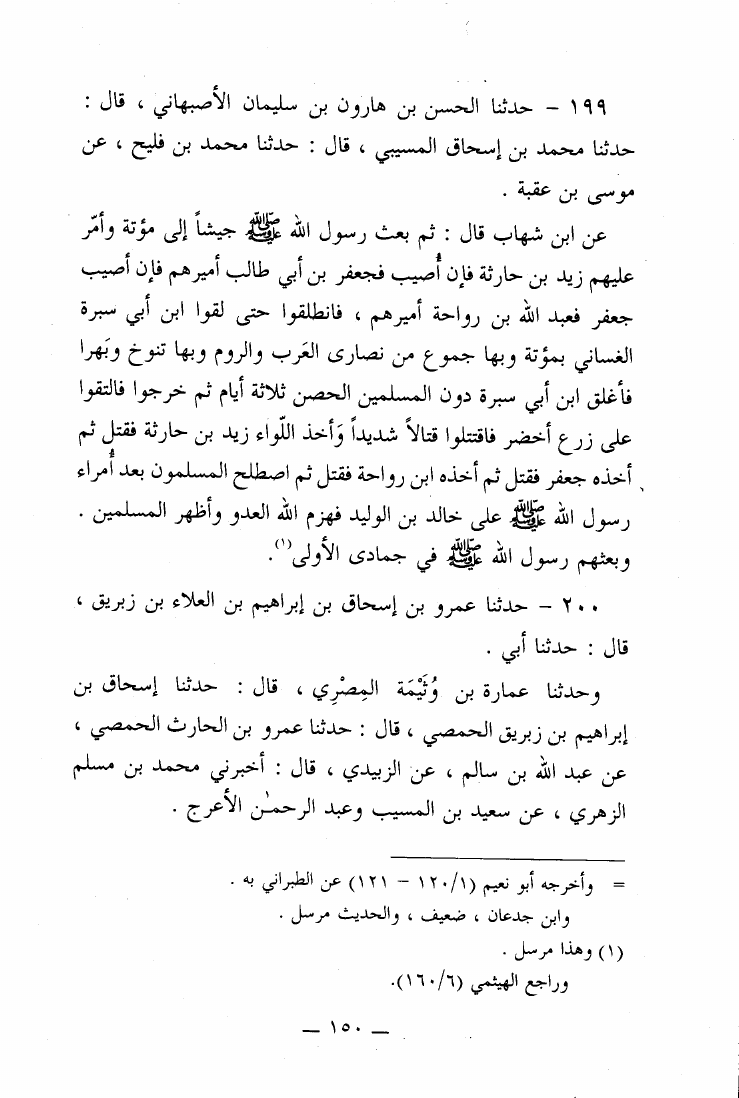 ١٩٩ – حدثنا الحسن بن هارون بن سليمان الأصبهاني ، قال :
حدثنا محمد بن إسحاق المسيبي ، قال : حدثنا محمد بن فليح ، عن
موسى بن عقبة .
عن ابن شهاب قال : ثم بعث رسول الله ﷺ جيشاً إلى مؤتة وأمّر
عليهم زيد بن حارثة فإن أُصيب فجعفر بن أبي طالب أميرهم فإن أصيب
جعفر فعبد الله بن رواحة أميرهم ، فانطلقوا حتى لقوا ابن أبي سبرة
الغساني بمؤتة وبها جموع من نصارى العَرب والروم وبها تنوخ وبَهرا
فأغلق ابن أبي سبرة دون المسلمين الحصن ثلاثة أيام ثم خرجوا فالتقوا
على زرع أخضر فاقتتلوا قتالاً شديداً وَأخذ اللّواء زيد بن حارثة فقتل ثم
أخذه جعفر فقتل ثم أخذه ابن رواحة فقتل ثم اصطلح المسلمون بعد أُمراء
رسول الله ﷺ على خالد بن الوليد فهزم الله العدو وأظهر المسلمين .
وبعثهم رسول الله ﷺ في جمادى الأولى(١).
٢٠٠ – حدثنا عمرو بن إسحاق بن إبراهيم بن العلاء بن زبريق ،
قال : حدثنا أبي .
وحدثنا عمارة بن وُثَيْمَة المِصْرِي ، قال : حدثنا إسحاق بن
إبراهيم بن زبريق الحمصي ، قال : حدثنا عمرو بن الحارث الحمصي ،
عن عبد الله بن سالم ، عن الزبيدي ، قال : أخبرني محمد بن مسلم
الزهري ، عن سعيد بن المسيب وعبد الرحمٰن الأعرج .
= وأخرجه أبو نعيم (١٢٠/١ – ١٢١) عن الطبراني به .
وابن جدعان ، ضعيف ، والحديث مرسل .
(١) وهذا مرسل .
وراجع الهيثمي (١٦٠/٦).
— ١٥٠ —